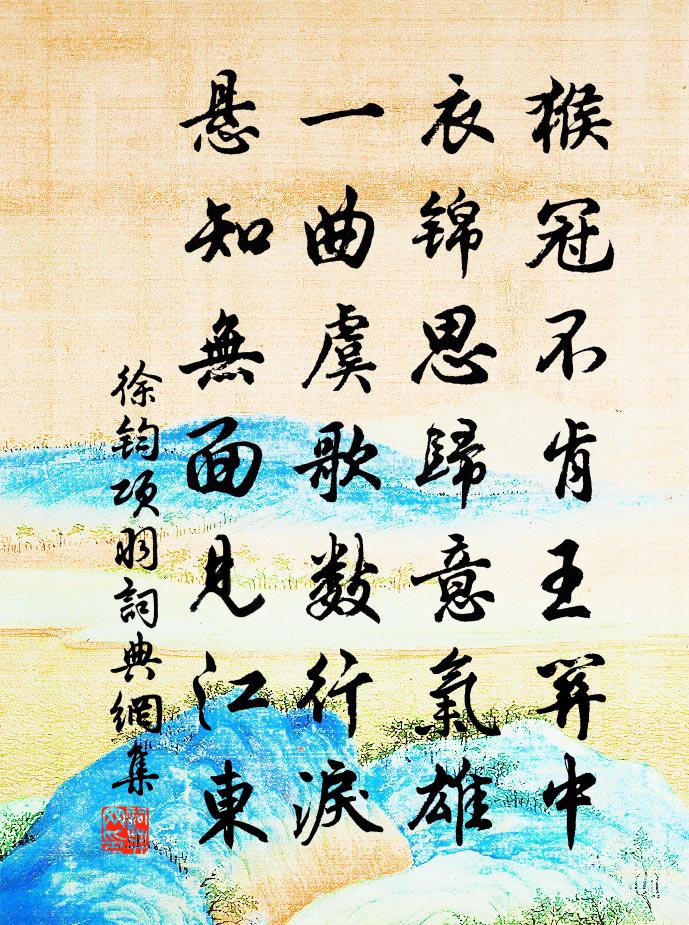 猴冠不肯王關中
衣錦思歸意氣雄
一曲虞歌数行淚
悬知無面見江東
徐鈞項羽詞典網集